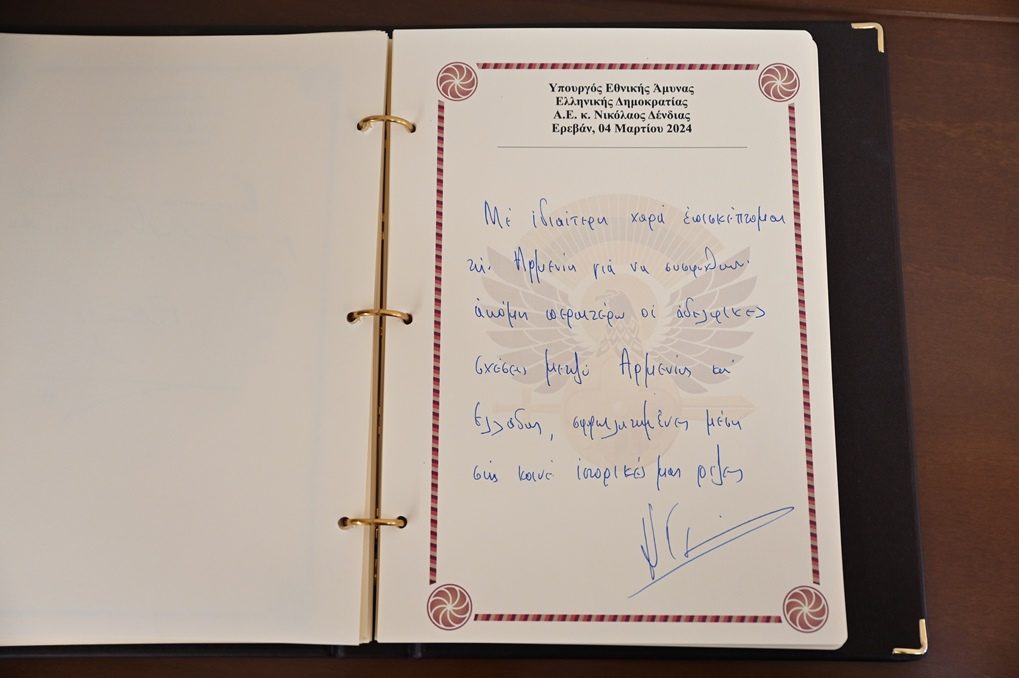 Υπουργός Εθνικής Άμυνας
Ελληνικής Δημοκρατίας
Α.Ε. κ. Νικόλαος Δένδιας
Ερεβάν, 04 Μαρτίου 2024
Μέ ἰδιαίτερη χαρά ἐπισκέπτομαι
τήν Ἀρμενία γιά να συσφιχθούν
ἀκόμη περαιτέρω οἱ ἀδελφικές
σχέσεις μεταξύ Ἀρμενίας καί
Ἑλλάδας, σφυρηλατημένες μέσα
στίς κοινές ἱστορικές μας ρίζες